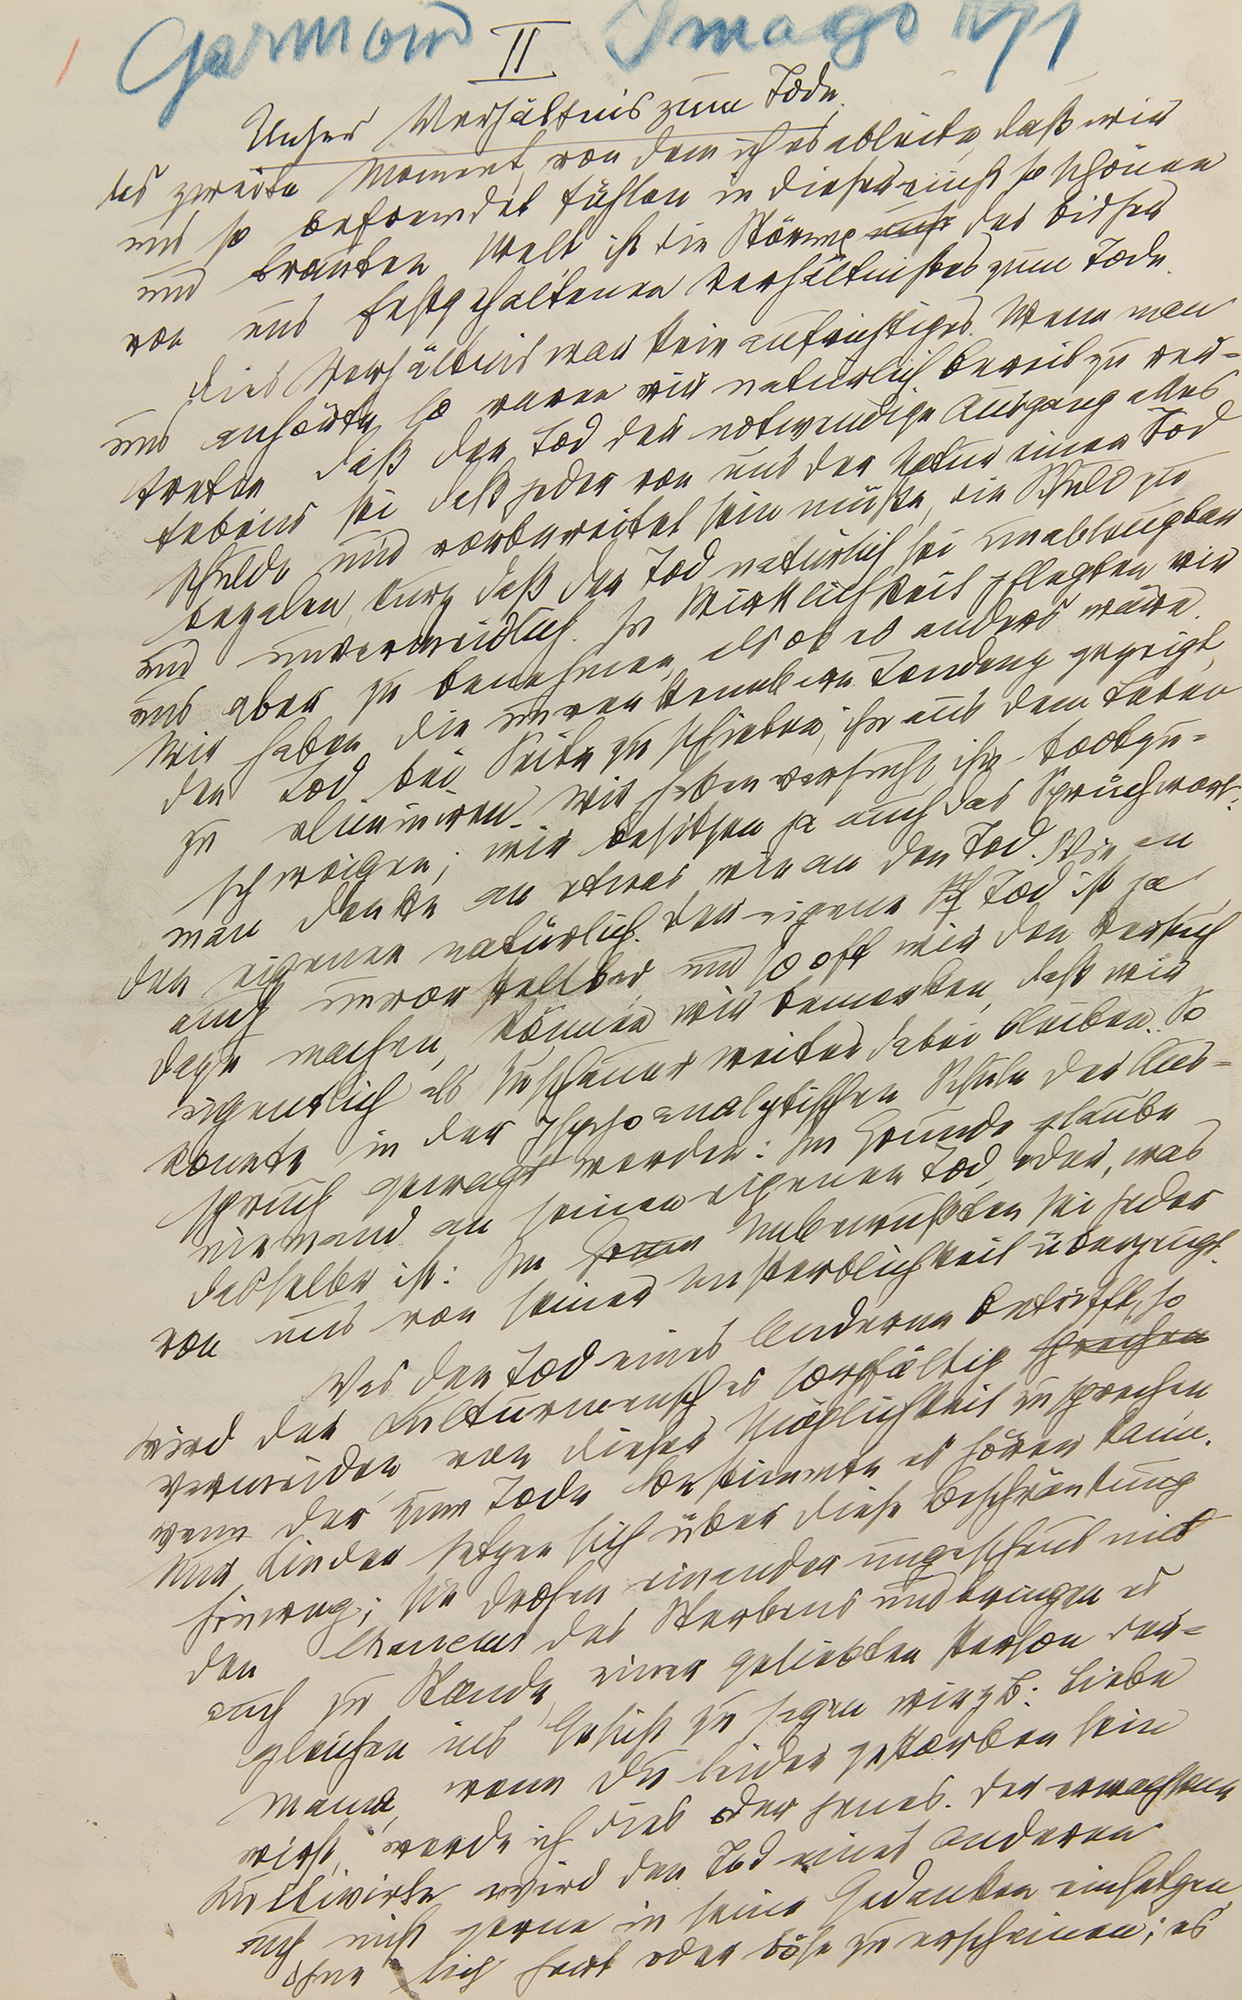 Garmond Imago IV/1
II
Unser Verhältnis zum Tode.
Das zweite Moment, von dem ich es ableite, daß wir
uns so befremdet fühlen in dieser einst so schönen
und trauten Welt ist die Störung des bisher
von uns festgehaltenen Verhältnißes zum Tode.
Dies Verhältnis war kein aufrichtiges. Wenn man
uns anhörte, so waren wir natürlich bereit zu ver-
treten daß der Tod der notwendige Ausgang alles
Lebens sei daß jeder von uns der Natur einen Tod
schulde und vorbereitet sein müße, die Schuld zu
bezalen, kurz daß der Tod natürlich sei unableugbar
und unvermeidlich. In Wirklichkeit pflegten wir
uns aber zu benehmen, als ob es anders wäre.
Wir haben die unverkennbare Tendenz gezeigt,
den Tod bei Seite zu schieben, ihn aus dem Leben
zu eliminiren. Wir haben versucht, ihn todtzu-
schweigen; wir besitzen ja auch das Sprüchwort:
man denke an etwas wie an den Tod. Wie an
den eigenen natürlich. Der eigene Tod ist ja
auch unvorstellbar und so oft wir den Versuch
dazu machen, können wir bemerken, daß wir
eigentlich als Zuschauer weiter dabei bleiben. So
konnte in der psychoanalytischen Schule der Aus-
spruch gewagt werden: Im Grunde glaube
niemand an seinen eigenen Tod oder, was
dasselbe ist: Im Unbewußten sei jeder
von uns von seiner Unsterblichkeit überzeugt.
Was den Tod eines Anderen betrifft, so
wird der Kulturmensch es sorgfältig sprechen
vermeiden, von dieser Möglichkeit zu sprechen
wenn der zum Tode bestimmte es hören kann.
Nur Kinder setzen sich über diese Beschränkung
hinweg; sie drohen einander ungescheut mit
den Chancen des Sterbens und bringen es
auch zu Stande, einer geliebten Person der-
gleichen ins Gesicht zu sagen wie z B: Liebe
Mama, wenn du leider gestorben sein
wirst, werde ich dies oder jenes. Der erwachsene
Kultivirte wird den Tod eines anderen
auch nicht gerne in seine Gedanken einsetzen
ohne sich hart oder böse zu erscheinen; es